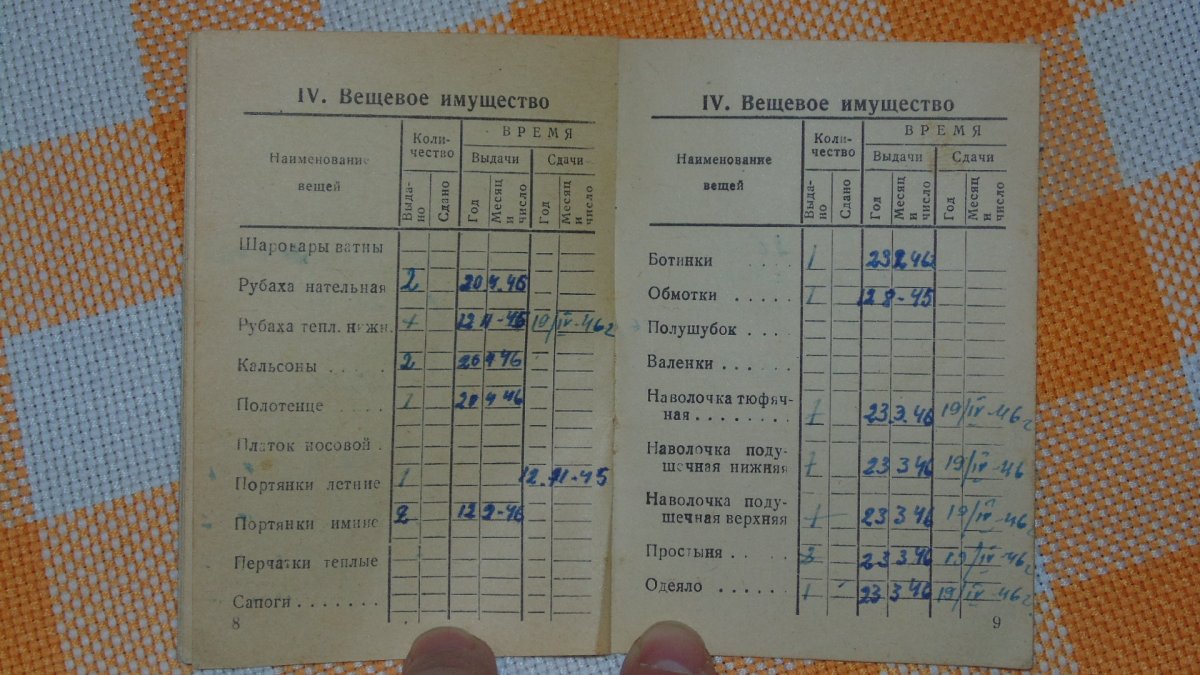 IV. Вещевое имущество
Наименование
вещей
Коли-
чество
ВРЕМЯ
Выдачи
Сдачи
Выда-
но
Сдано
Год
Месяц
и
число
Год
Месяц
и
число
Шаровары ватны
Рубаха нательная 2 20 4.46
Рубаха тепл. нижн. 1 12 11-45 19/IV-46г
Кальсоны ..... 2 20 4 46
Полотенце .... 1 20 4 46
Платок носовой .
Портянки летние 1 12.11-45
Портянки имние 2 12 2-46
Перчатки теплые
Сапоги .......
8
IV. Вещевое имущество
Наименование
вещей
Коли-
чество
ВРЕМЯ
Выдачи
Сдачи
Выда-
но
Сдано
Год
Месяц
и
число
Год
Месяц
и
число
Ботинки .... 1 23 2 46
Обмотки ..... 1 12 8-45
Полушубок ....
Валенки .....
Наволочка тюфяч-
ная ........ 1 23.3.46 19/IV-46г
Наволочка поду-
шечная нижняя 1 23 3 46 19/IV-46
Наволочка поду-
шечная верхняя 1 23 3 46 19/IV-46г
Простыня .... 2 23 3 46 19/IV-46г
Одеяло ...... 1 23 3 46 19/IV-46г
9